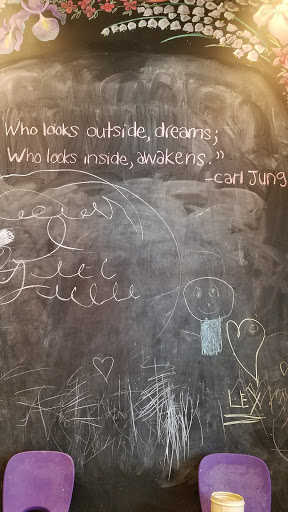 "Who looks outside, dreams;
Who looks inside, awakens."
-Carl Jung
LEX